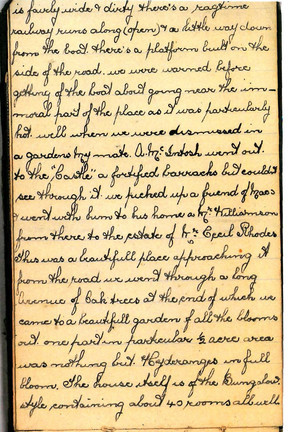 is fairly wide & dirty there's a ragtime
railway runs along (open) & a little way down
from the boat. there's a platform built on the
side of the road. we were warned before
getting of the boat about going near the im-
moral part of the place as it was particularly
hot. well when we were dismissed in
a gardens my mate A. McIntosh went out
to the "Castle" a fortified barracks but couldn't
see through it we picked up a friend of Mac's
& went with him to his home a Mr Williamson
from there to the estate of Mr Cecil Rhodes
this was a beautifull place approaching it
from the road we went through a long
Avenue of Oak trees at the end of which we
came to a beautifull garden of all the blooms
out one part in particular ½ acre area
was nothing but Hyderanges in full
bloom. The house itself is of the Bungalow
style containing about 40 rooms all well